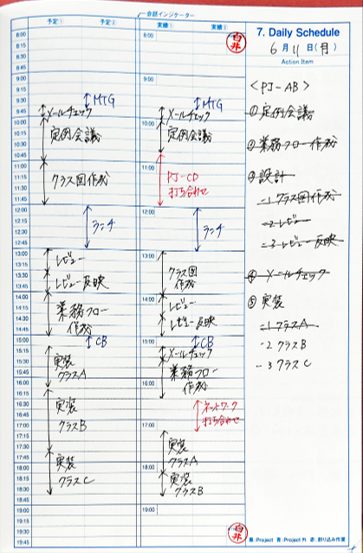 会話インジケーター
予定① 予定② 実績① 実績②
白井
7. Daily Schedule
6月11日(月)
Action Item
8:00
8:15
8:30
8:45
9:00
9:15
9:30
9:45
10:00
10:15
10:30
10:45
11:00
11:15
11:30
11:45
12:00
12:15
12:30
12:45
13:00
13:15
13:30
13:45
14:00
14:15
14:30
14:45
15:00
15:15
15:30
15:45
16:00
16:15
16:30
16:45
17:00
17:15
17:30
17:45
18:00
18:15
18:30
18:45
19:00
19:15
19:30
19:45
MTG
メールチェック
定例会議
クラス図作成
ランチ
レビュー
レビュー反映
業務フロー
作成
CB
実装
クラスA
実装
クラスB
実装
クラスC
8:00
9:00
10:00
11:00
12:00
13:00
14:00
15:00
16:00
17:00
18:00
19:00
MTG
メールチェック
定例会議
PJ-CD
打ち合わせ
ランチ
クラス図
作成
レビュー
レビュー反映
CB
メールチェック
業務フロー
作成
ネットワーク
打ち合わせ
実装
クラスA
実装
クラスB
白井
<PJ-AB>
① 定例会議
② 業務フロー作成
③ 設計
-1 クラス図作成
-2 レビュー
-3 レビュー反映
④ メールチェック
⑤ 実装
-1 クラスA
-2 クラスB
-3 クラスC
黒:Project 青:Project外 赤:割り込み作業